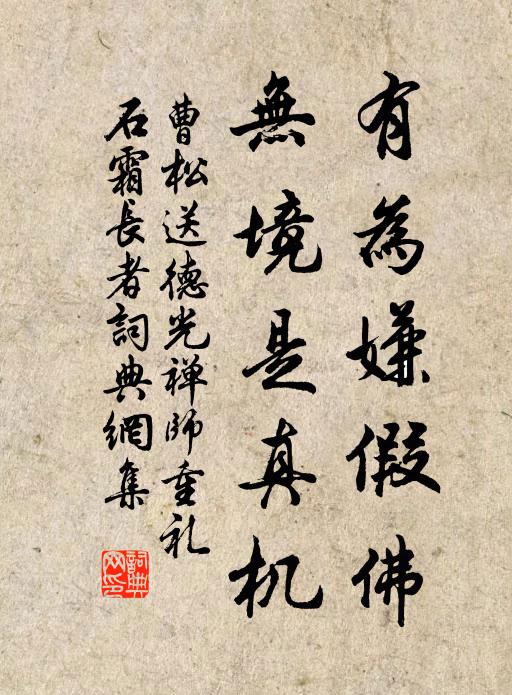 有為嫌假佛
無境是真机
曹松送德光禅師重礼
石霜長者詞典網集
詞典網印